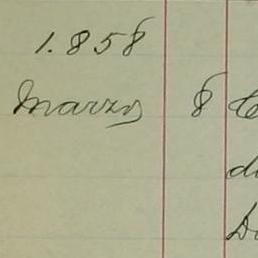 1.858
Marzo 8